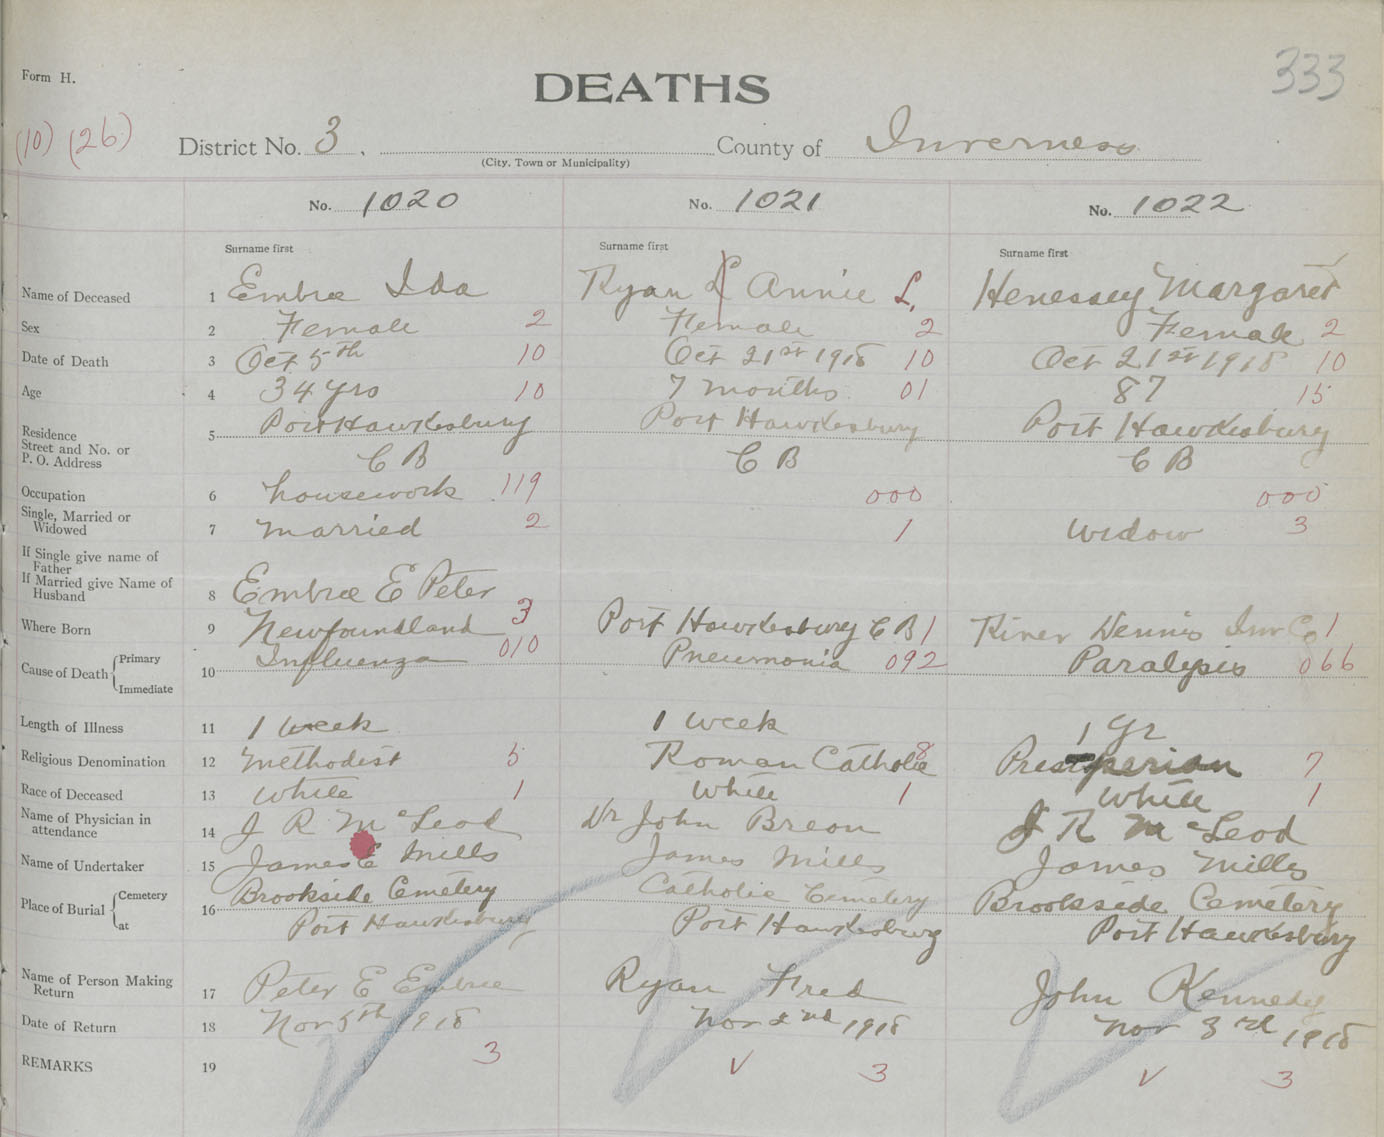 Form H.
DEATHS
333
(10) (26)
District No. 3, County of Inverness
(City, Town or Municipality)
No. 1020 No. 1021 No. 1022
Surname first Surname first Surname first
Name of Deceased 1 Embree Ida Ryan L Annie L. Henessey Margaret
Sex 2 Female 2 Female 2 Female 2
Date of Death 3 Oct 5th 10 Oct 21st 1918 10 Oct 21st 1918 10
Age 4 34 yrs 10 7 months 01 87 15
Residence Port Hawkesbury Port Hawkesbury Port Hawkesbury
Street and No. or 5
P. O. Address C B C B C B
Occupation 6 housework 119 000 000
Single, Married or
Widowed 7 married 2 1 widow 3
If Single give name of
Father
If Married give Name of
Husband 8 Embree E Peter
Where Born 9 Newfoundland 3 Port Hawkesbury C B 1 River Dennis Inv Co 1
Cause of Death Primary 10 Influenza 010 Pneumonia 092 Paralysis 066
Immediate
Length of Illness 11 1 week 1 week 1 yr
Religious Denomination 12 Methodist 5 Roman Catholic 8 7
Race of Deceased 13 White 1 White 1 White 1
Name of Physician in
attendance 14 J R McLeod Dr John Breon J R McLeod
Name of Undertaker 15 James E Mills James Mills James Mills
Place of Burial Cemetery 16 Brookside Cemetery Catholic Cemetery Brookside Cemetery
at Port Hawkesbury Port Hawkesbury Port Hawkesbury
Name of Person Making
Return 17 Peter E Embree Ryan Fred John Kennedy
Date of Return 18 Nov 5th 1918 Nov 2nd 1918 Nov 3rd 1918
REMARKS 19 3 3 3